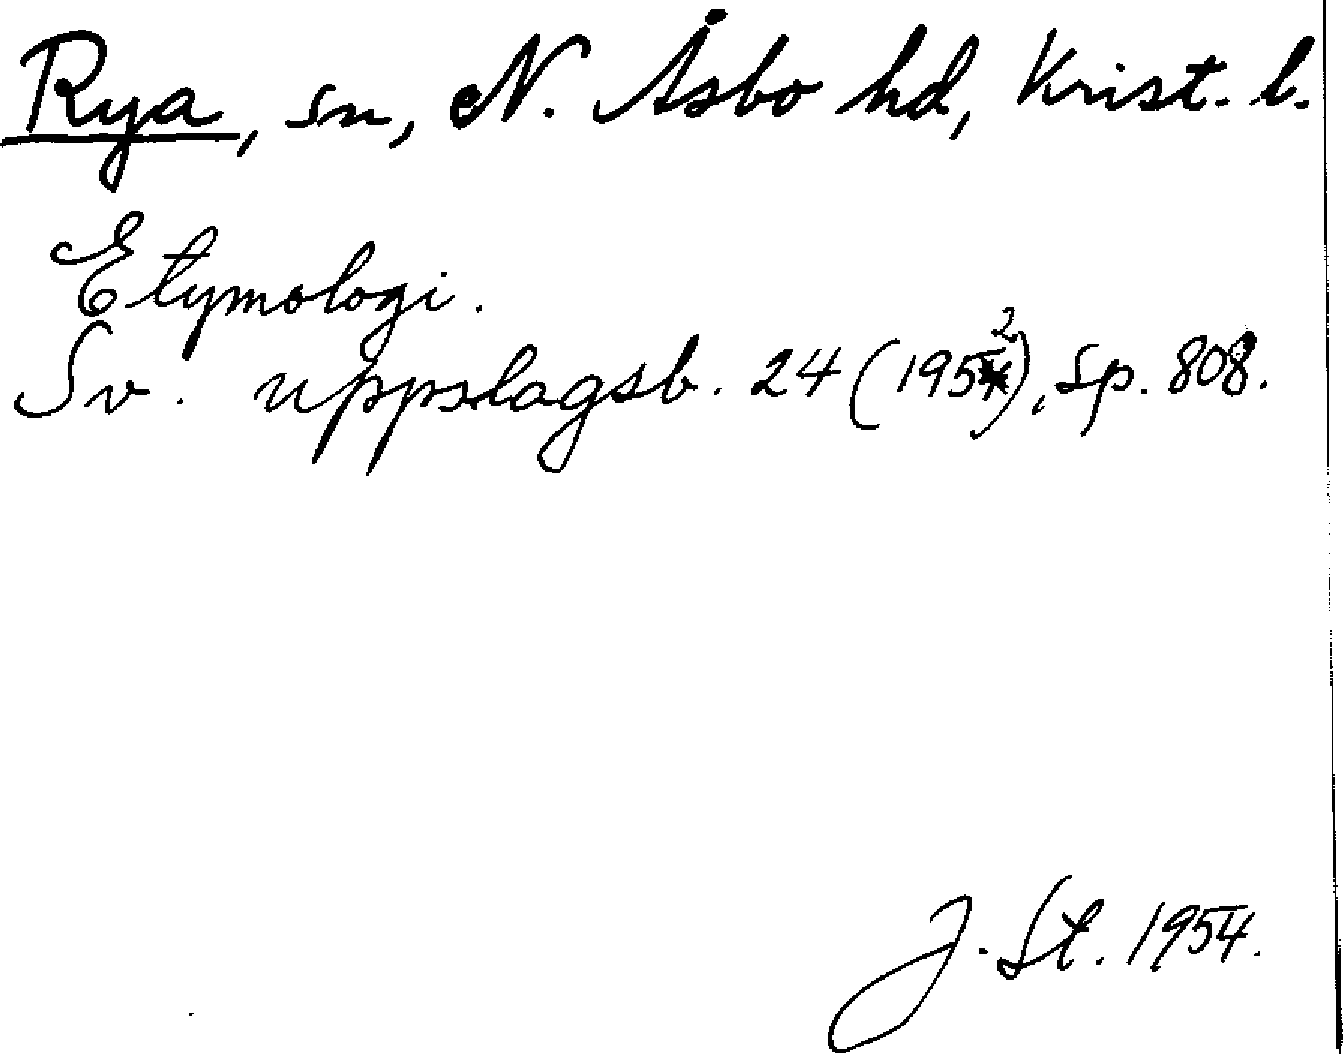 Rya, sn, N. Åsbo hd, Krist. l.
Etymologi.
Sv. uppslagsb. 24 (1952), sp. 808.
J. St. 1954.